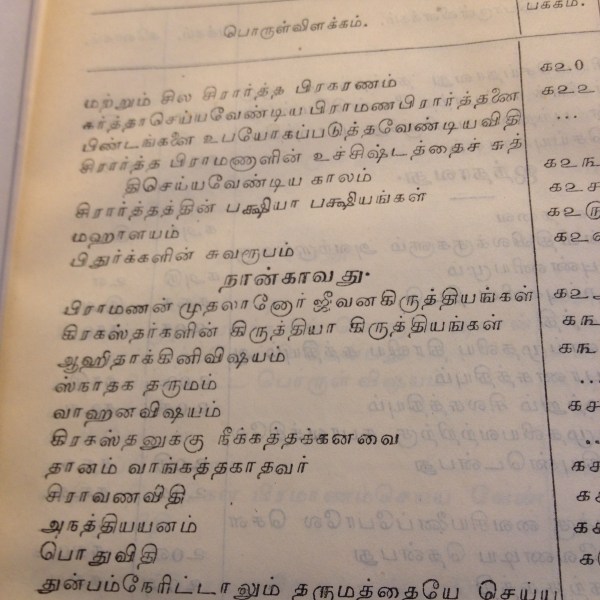 பொருள்விளக்கம்.
பக்கம்.
மற்றும் சில சிரார்த்த பிரகரணம் ௧௨0
கர்த்தாசெய்யவேண்டிய பிராமணபிரார்த்தனை ௧௨௨
பிண்டங்களை உபயோகப்படுத்தவேண்டியவிதி ...
சிரார்த்த பிராமணாளின் உச்சிஷ்டத்தைச் சுத்
திசெய்யவேண்டிய காலம் ௧௨௩
சிரார்த்தத்தின் பக்ஷியா பக்ஷியங்கள் ௧௨௪
மஹாளயம் ௧௨௫
பிதுர்க்களின் சுவரூபம்
நான்காவது.
பிராமணன் முதலானோர் ஜீவனகிருத்தியங்கள்
கிரகஸ்தர்களின் கிருத்தியா கிருத்தியங்கள்
ஆஹிதாக்கினிவிஷயம்
ஸ்நாதக தருமம்
வாஹனவிஷயம்
கிரகஸ்தனுககு நீக்கத்தக்கனவை
தானம் வாங்கத்தகாதவர்
சிராவணவிதி
அநத்தியயனம்
பொதுவிதி
துன்பம்நேரிட்டாலும் தருமத்தையே செய்ய